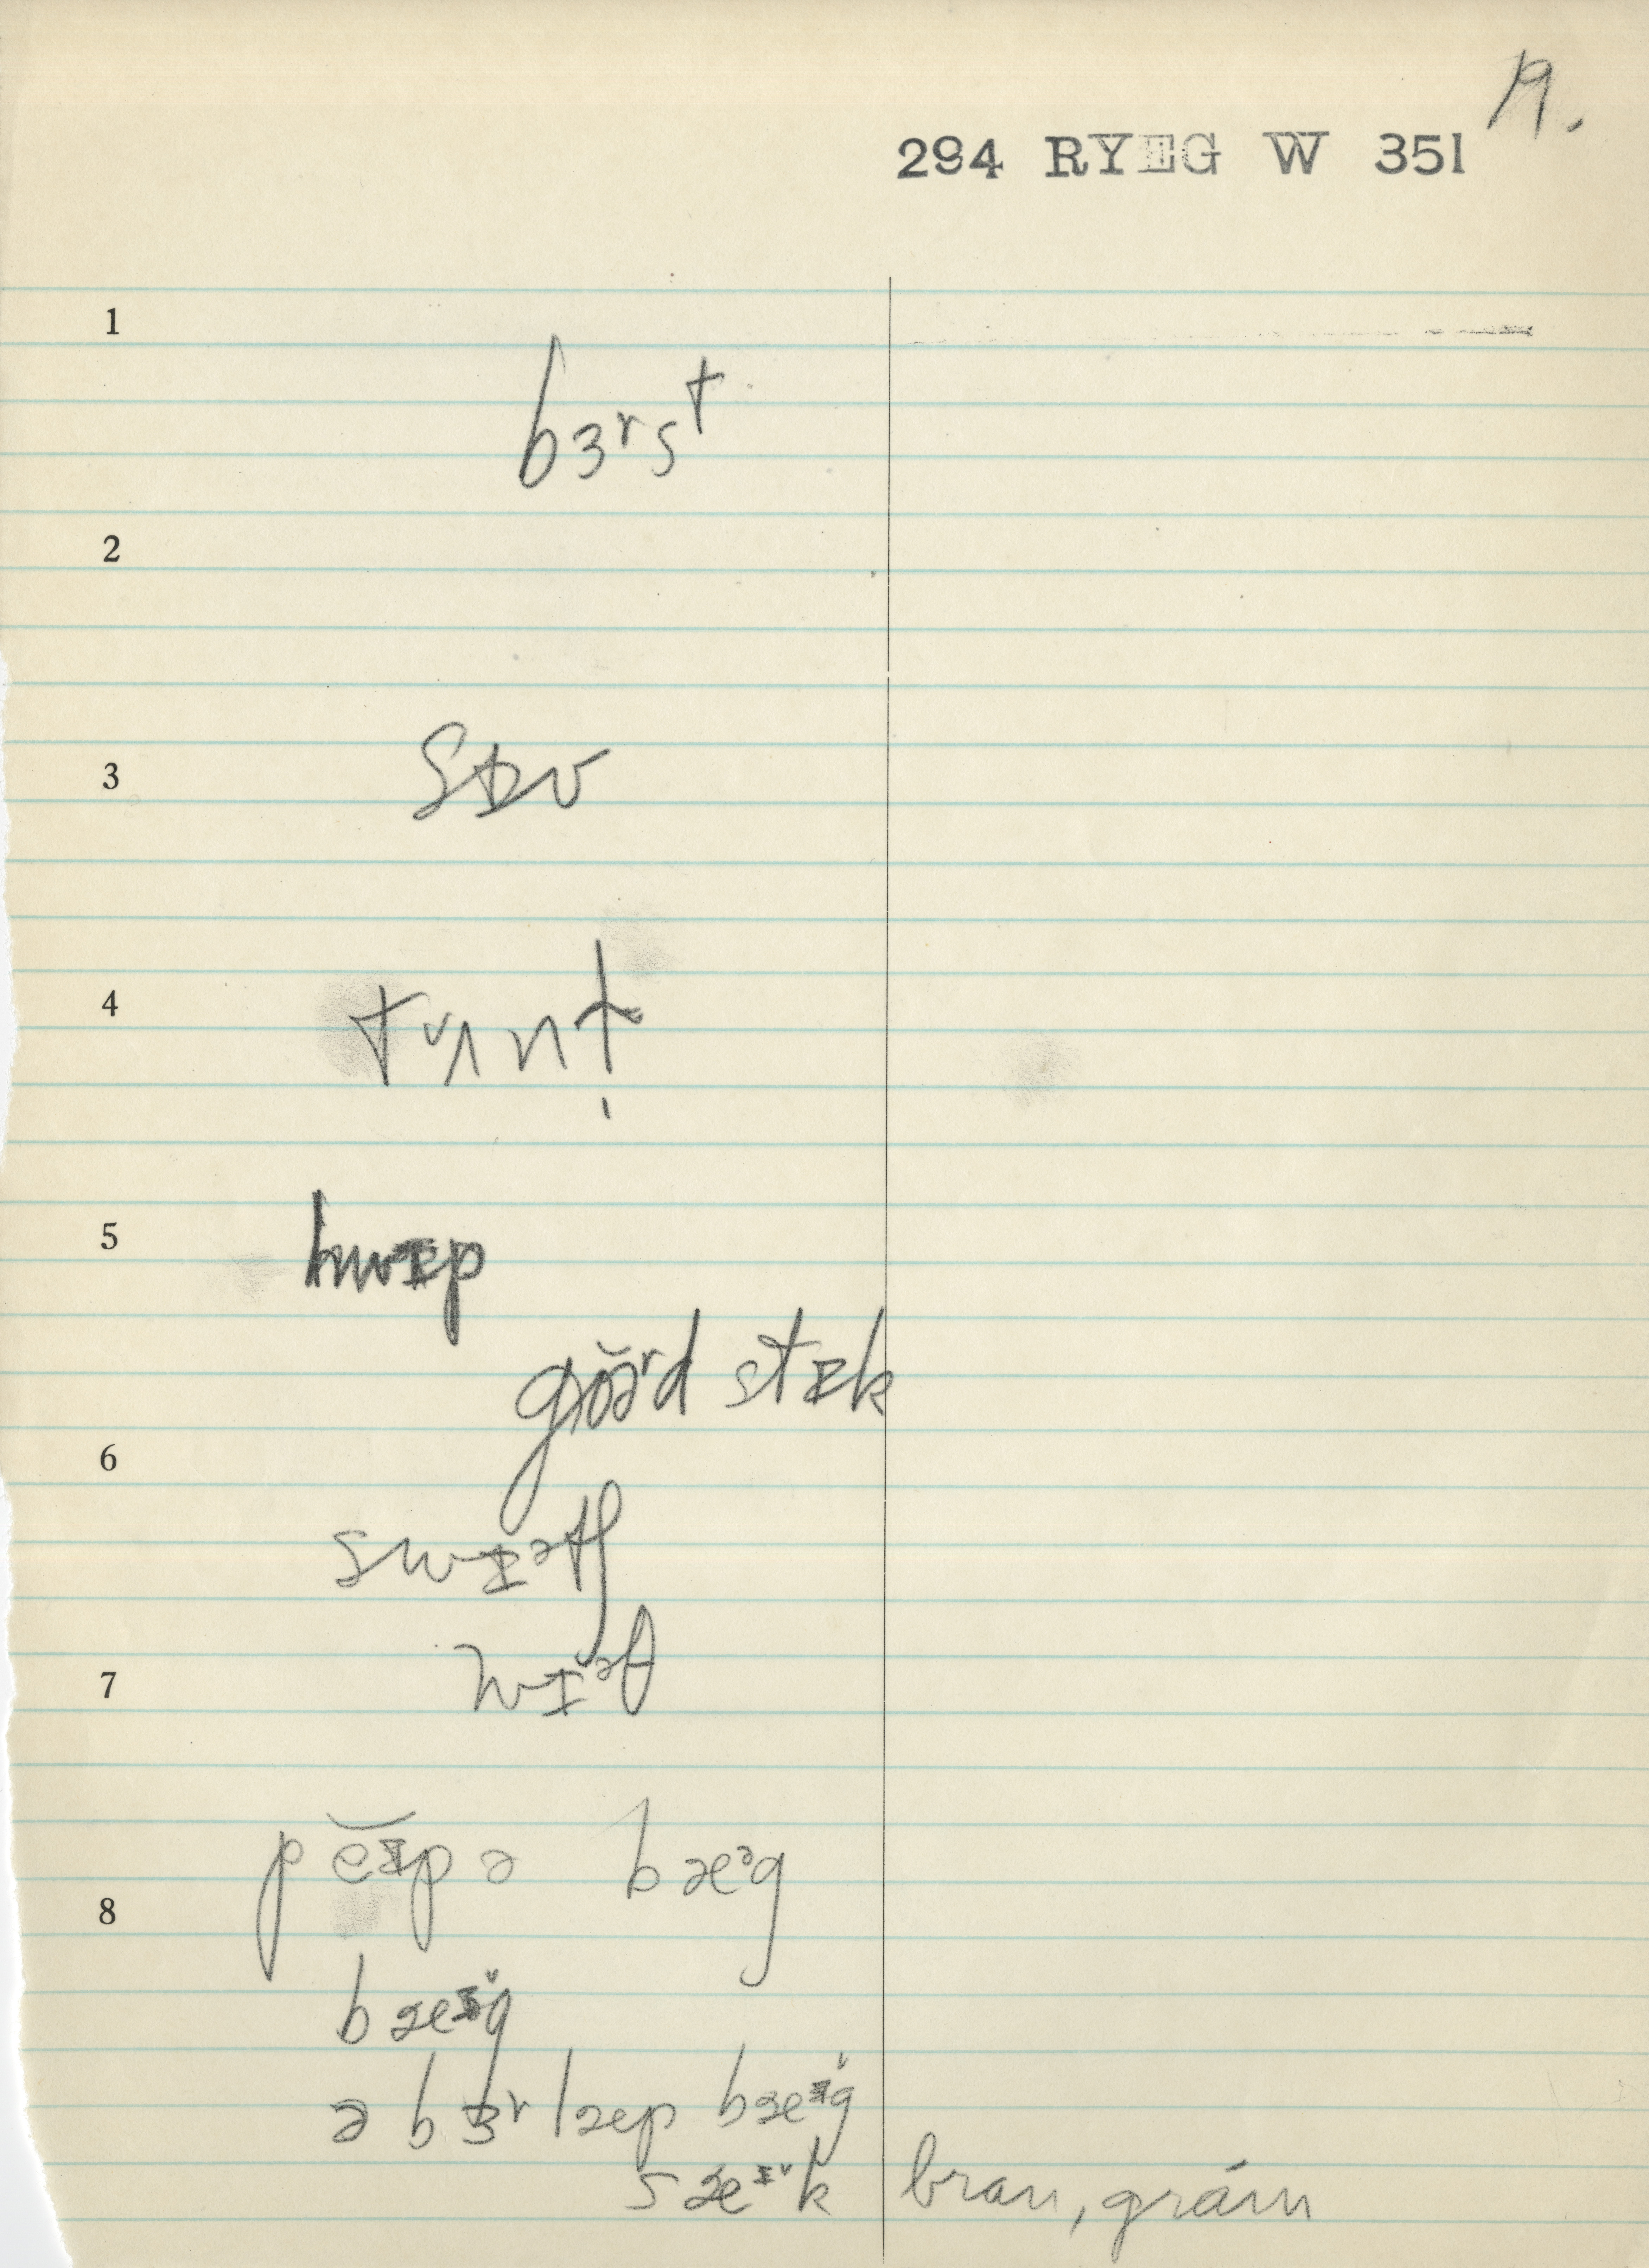 19.
294 RYEG W 351
1
bɜʳst
2
3
4
tʌnt
5
hwɪp
gŏəʳd stɪk
6
swɪᵊtʃ
7
wɪᵊθ
pĕɪpə bæᵊg
8
bæᶦg
ə bɜʳlæp bæᶦg
sæᶦk bran, gráin